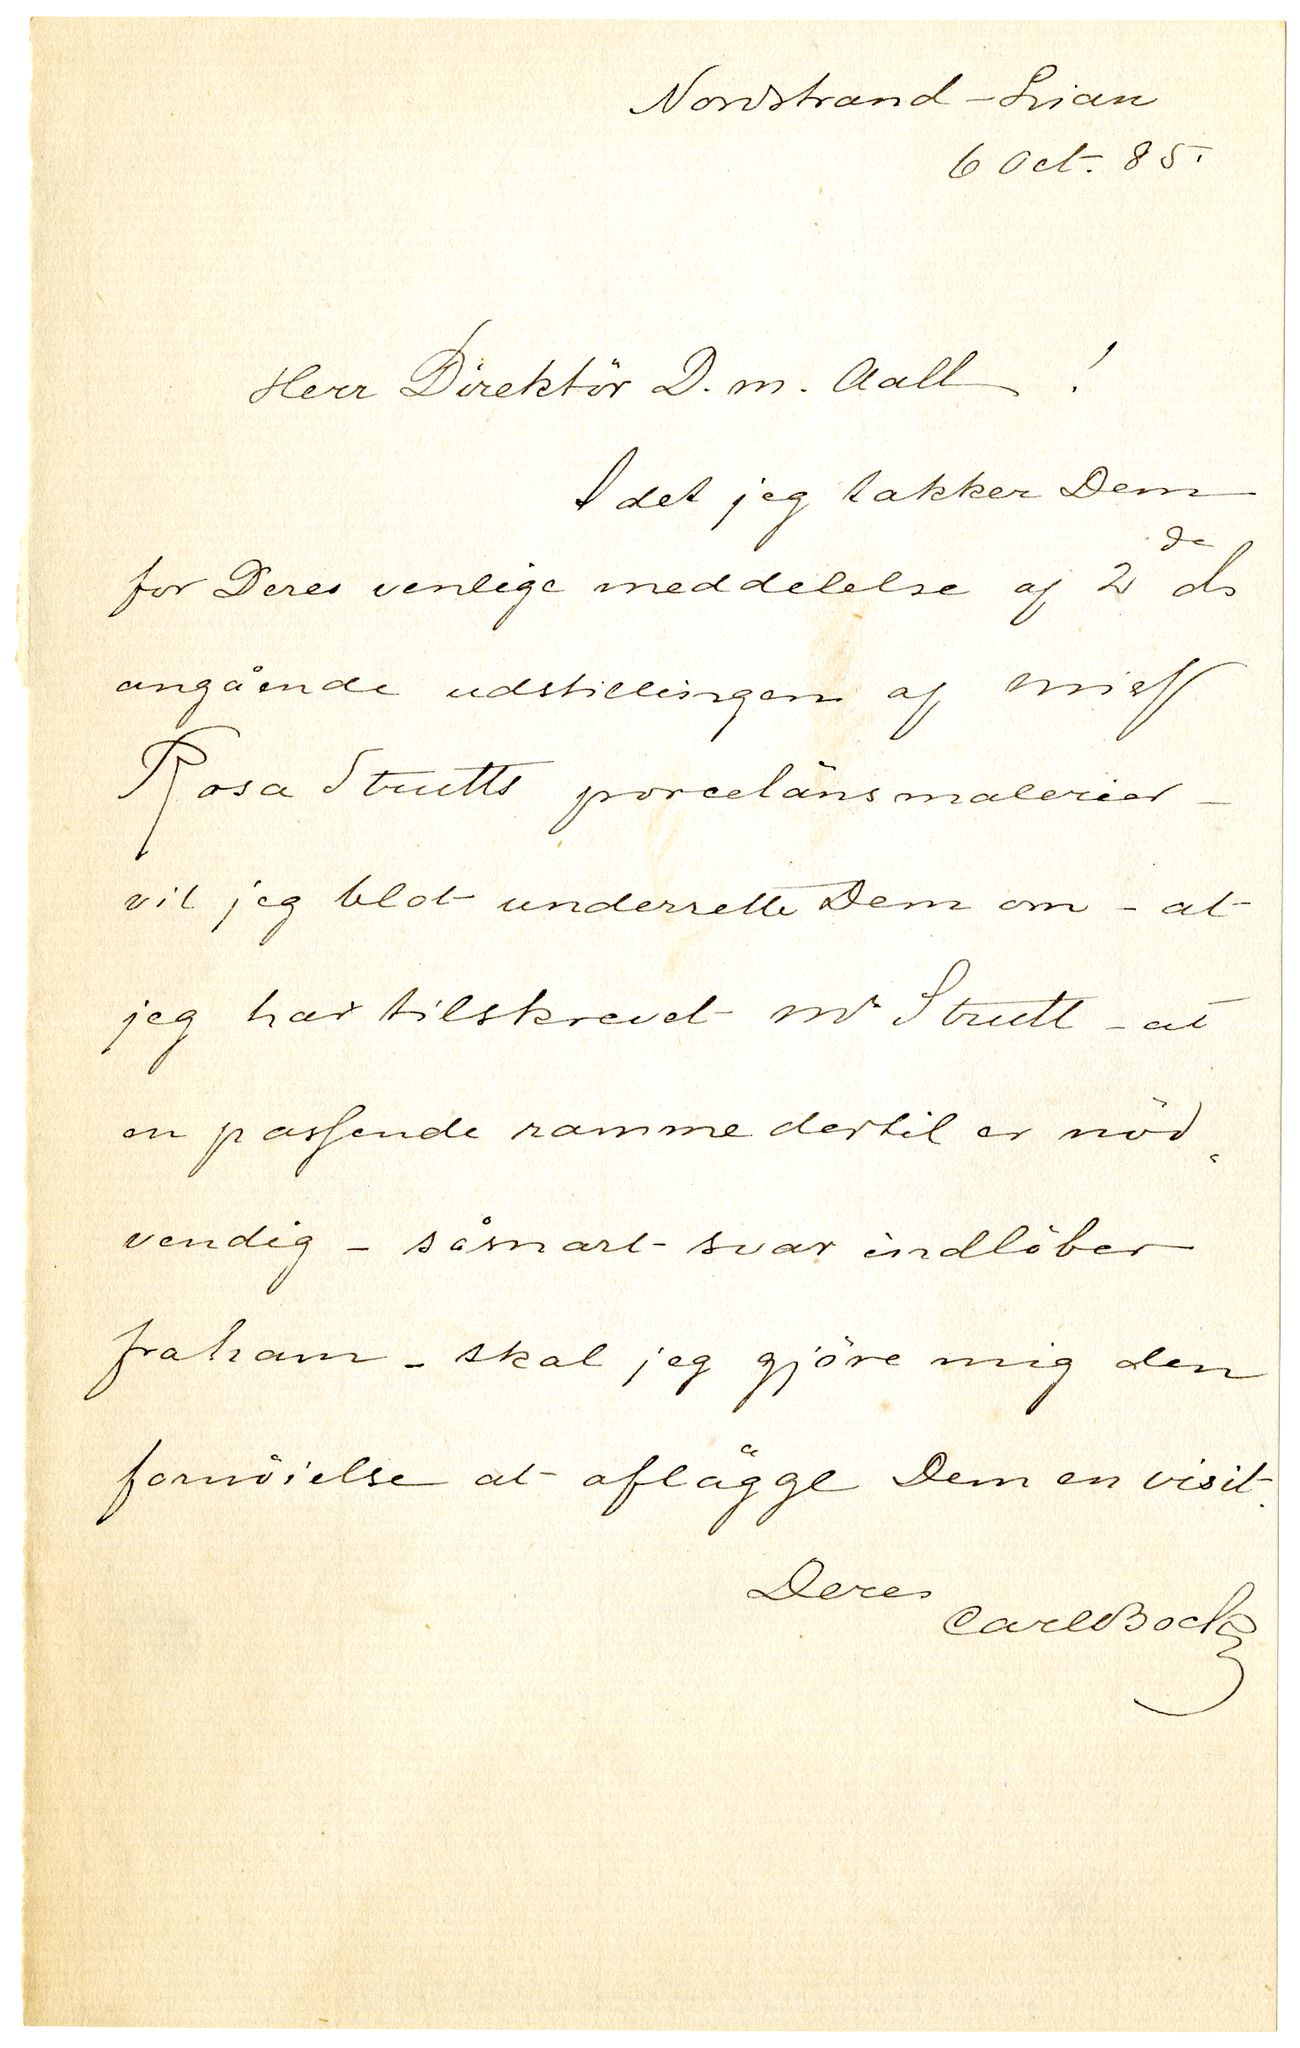 Nordstrand – Lian
6 Oct. 85.
Herr Direktör D. M. Aall !
I det jeg takker Dem
for Deres venlige meddelelse af 2de ds
angående udstillingen af miss
Rosa Strutts porcelänsmalerier –
vil jeg blot underrette Dem om – at
jeg har tilskrevet Mr Strutt – at
en passende ramme dertil er nöd-
vendig – såsnart svar indlöber
fra ham – skal jeg gjöre mig den
fornöielse at aflägge Dem en visit.
Deres
Carl Bock